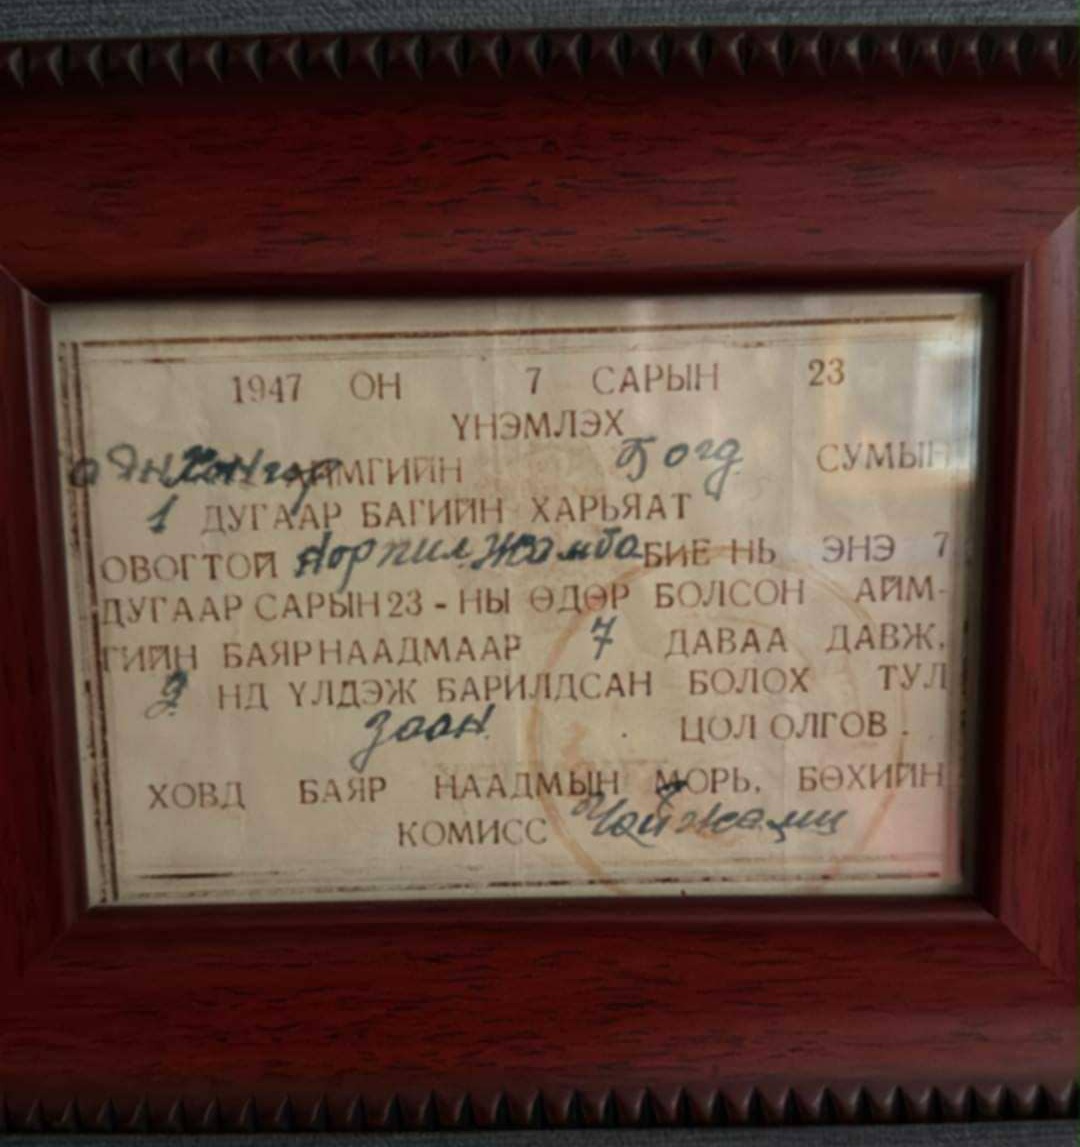 1947 ОН 7 САРЫН 23
ҮНЭМЛЭХ
аянхонгор АЙМГИЙН Богд СУМЫН
1 ДУГААР БАГИЙН ХАРЬЯАТ
ОВОГТОЙ Норпил Жамба БИЕ НЬ ЭНЭ 7
ДУГААР САРЫН 23 - НЫ ӨДӨР БОЛСОН АЙМ-
ГИЙН БАЯР НААДМААР 7 ДАВАА ДАВЖ,
2 НД ҮЛДЭЖ БАРИЛДСАН БОЛОХ ТУЛ
Заан ЦОЛ ОЛГОВ.
ХОВД БАЯР НААДМЫН МОРЬ, БӨХИЙН
КОМИСС